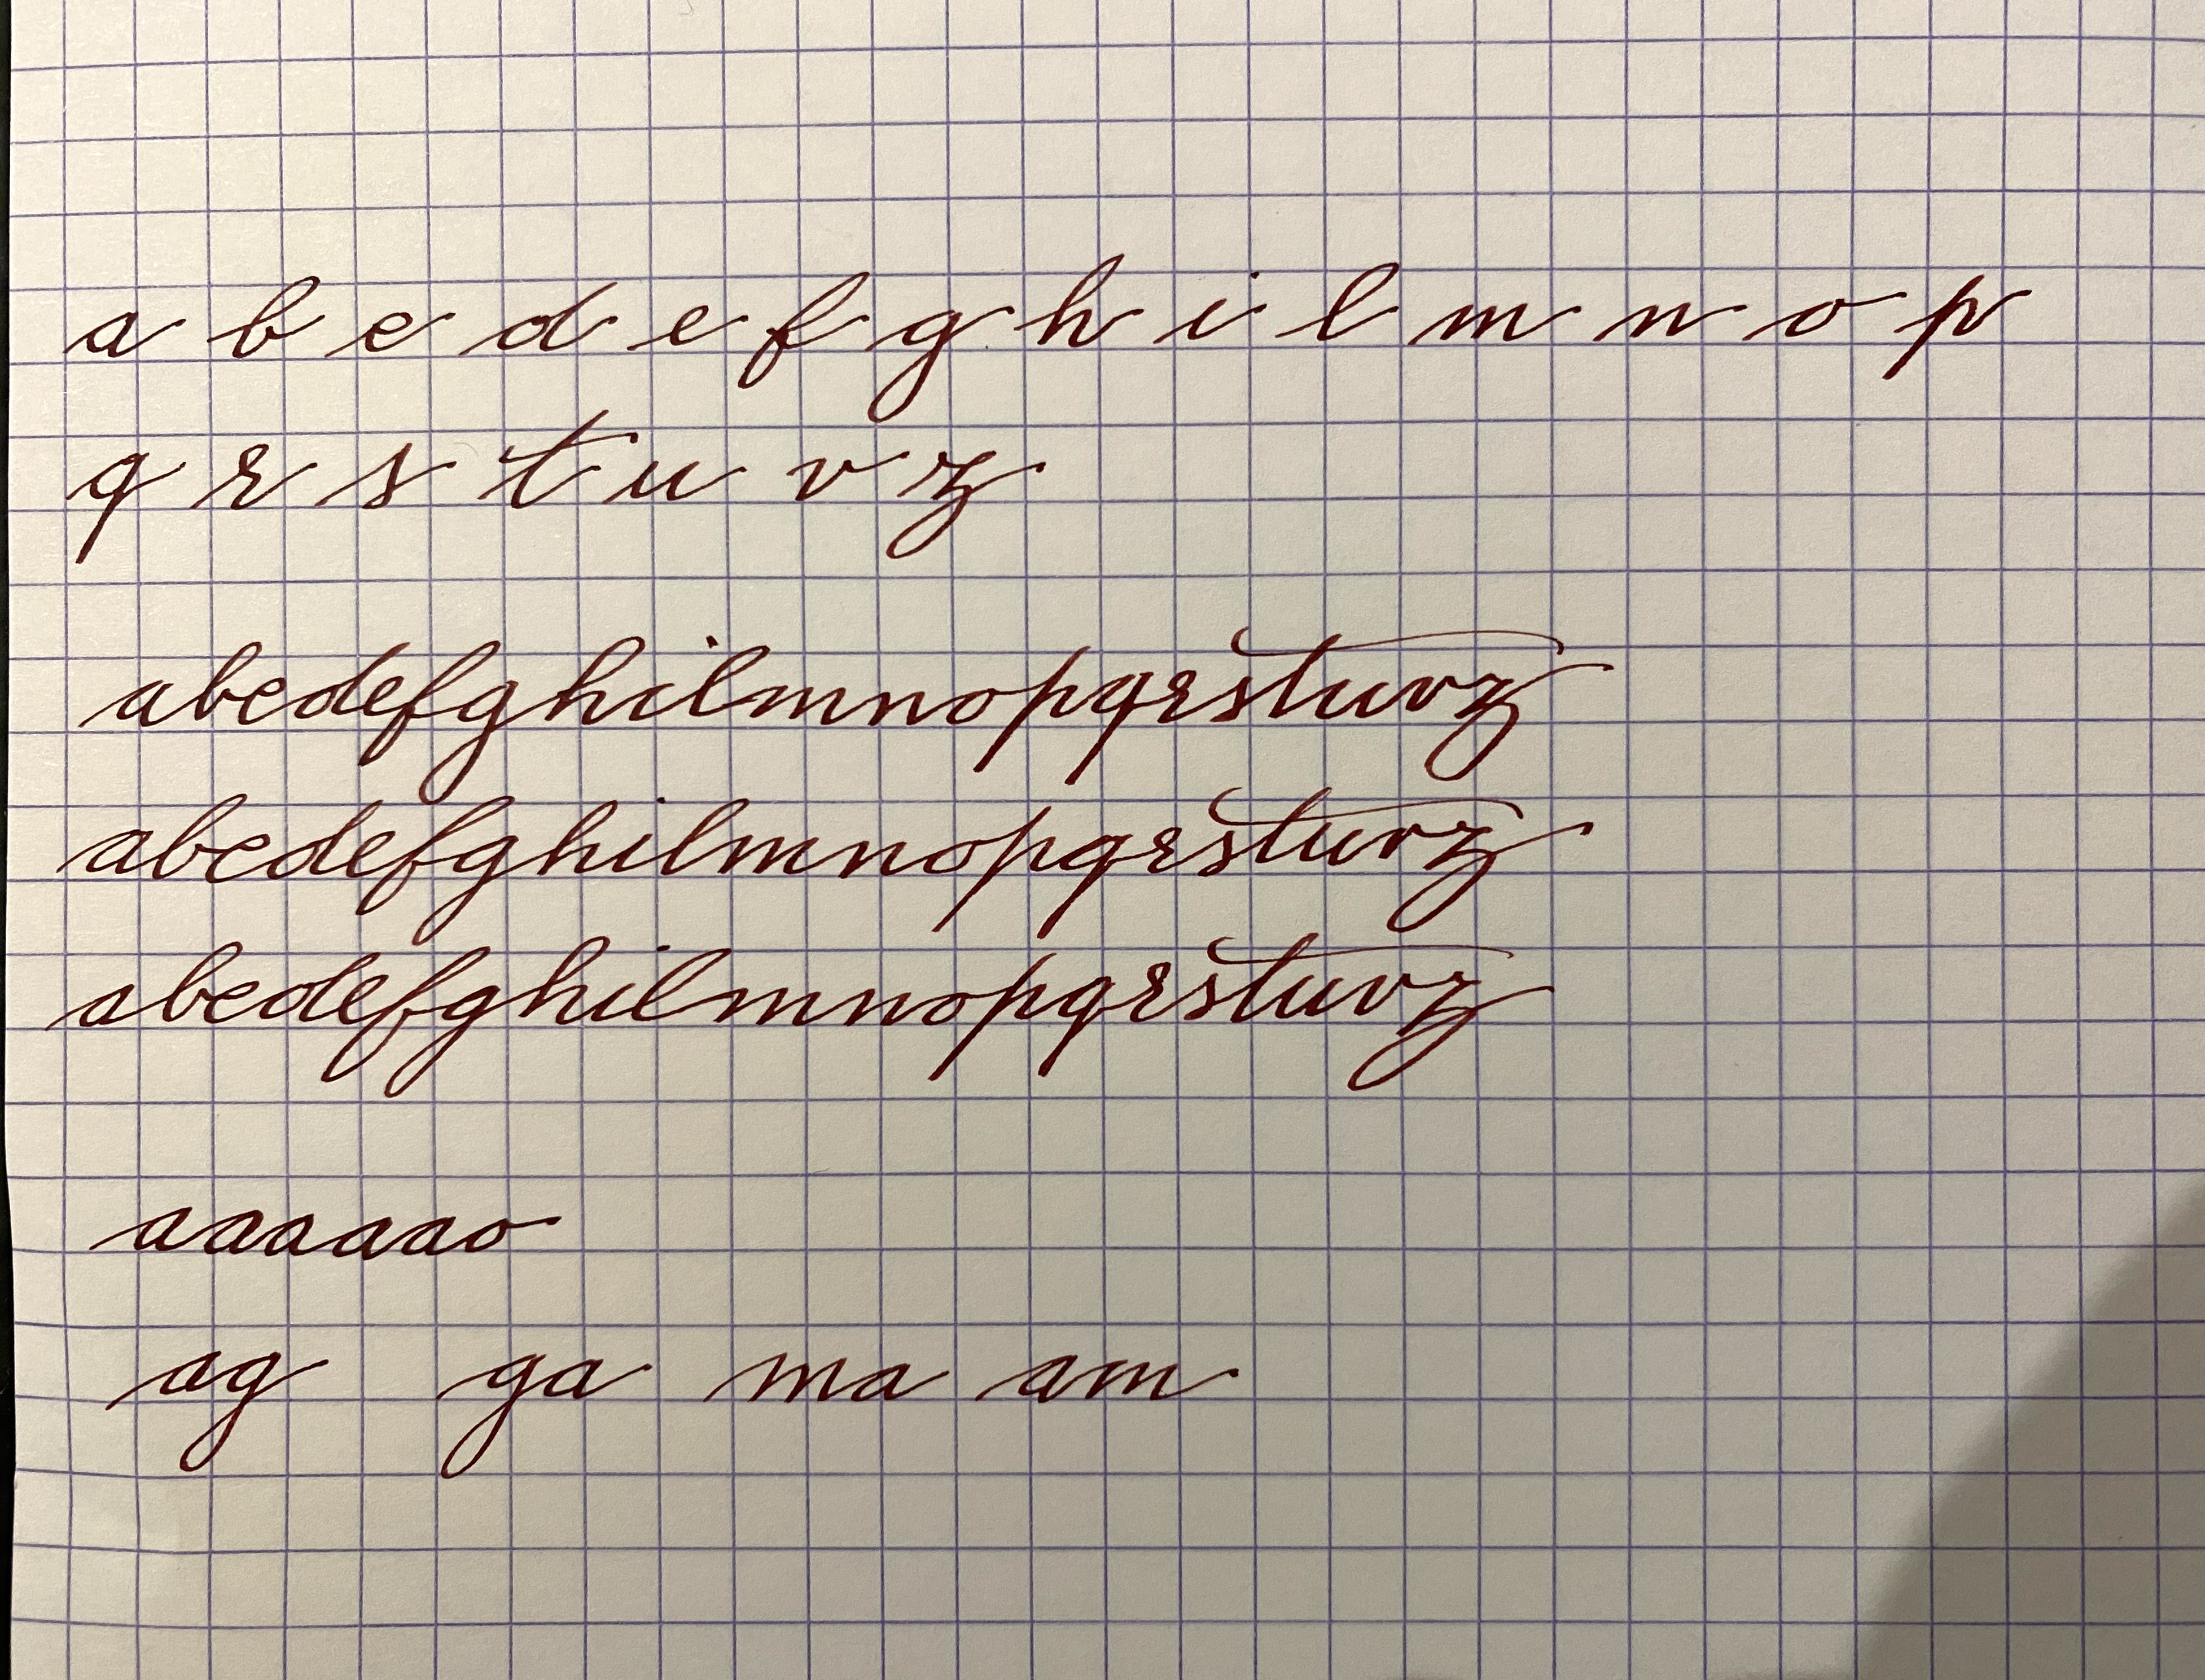 a b c d e f g h i l m n o p
q r s t u v z
abcdefghilmnopqrstuvz
abcdefghilmnopqrstuvz
abcdefghilmnopqrstuvz
aaaaaao
ag ga ma am